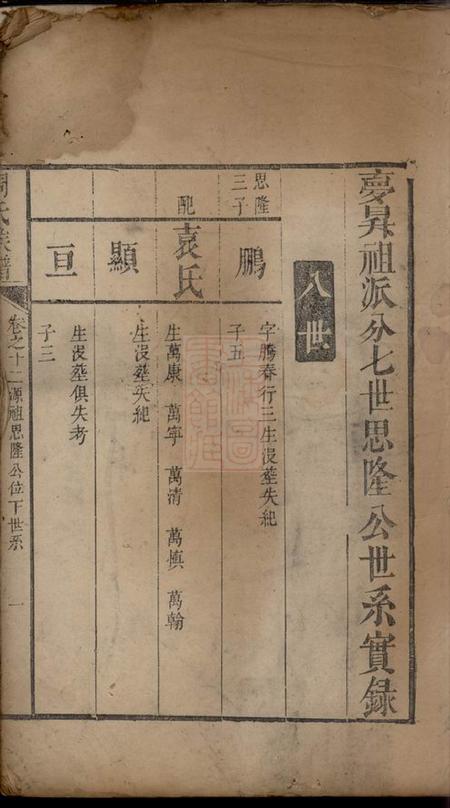 夢昇祖派分七世思隆公世系實録
八世
思隆
三子
鵬
字騰春行三生沒塟失紀
子五
配
袁氏
生萬康 萬寧 萬清 萬慎 萬翰
顯
生沒塟失紀
亘
生沒塟俱失考
子三
氏族譜
卷之十二源祖思隆公位下世系
一